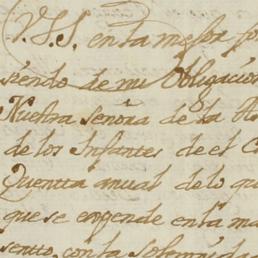 V.S.S. en la mejor for
siendo de mi Obligacion
Nuestra señora de la
de los Infantes de el C
Quentta anual de lo qu
que se expende en la ma
sentto, con la solemnidad